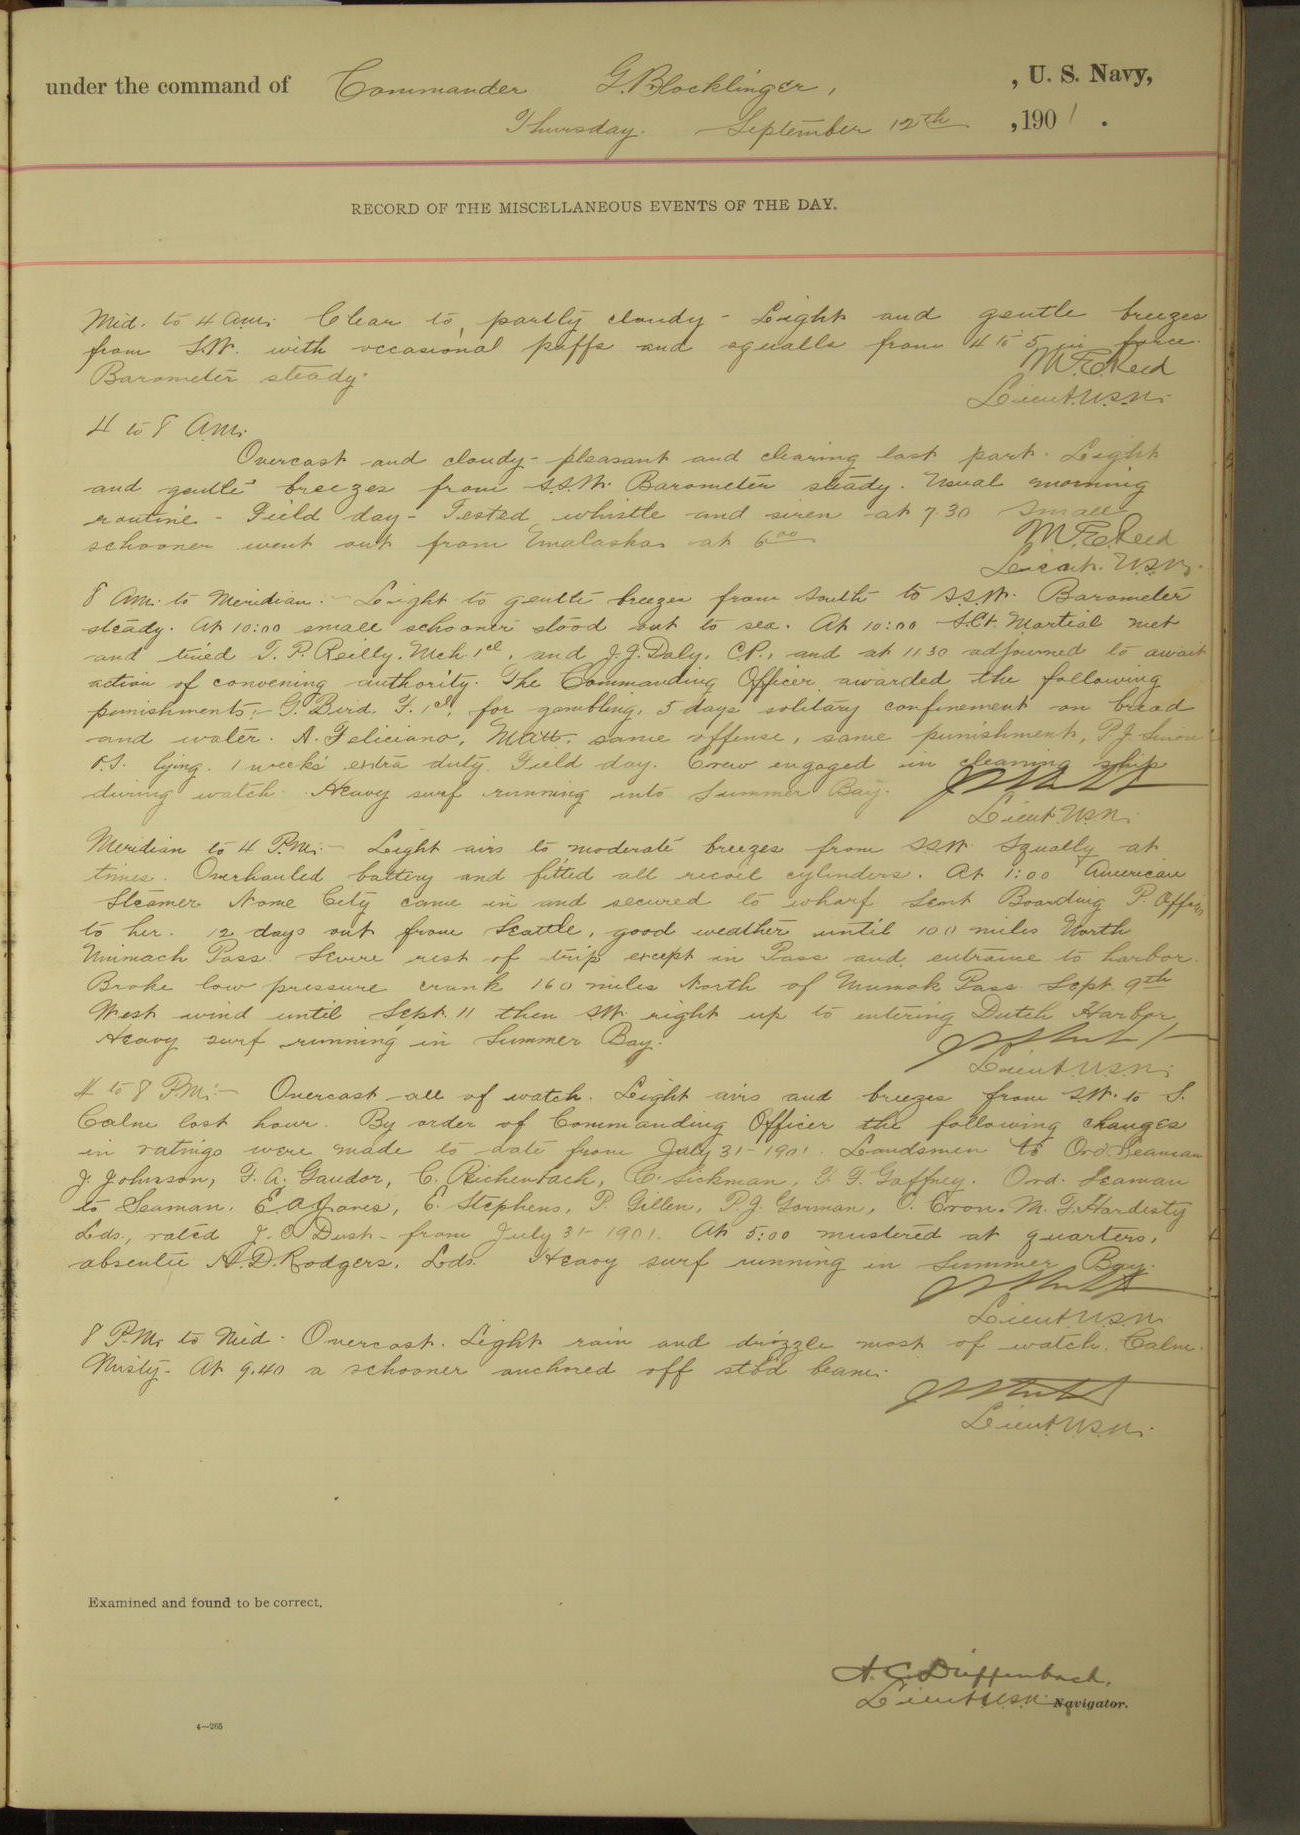 under the command of Commander G. Blocklinger, , U. S. Navy,
Thursday. September 12th ,1901 .
RECORD OF THE MISCELLANEOUS EVENTS OF THE DAY.
Mid. to 4 a.m: Clear to partly cloudy - Light and gentle breezes
from S.W. with occasional puffs and squalls from 4 to 5 in force.
Barometer steady.
M.E. Reed
Lieut. U.S.N.
4 to 8 A.M:
Overcast and cloudy - pleasant and clearing last part. Light
and gentle breezes from S.S.W. Barometer steady. Usual morning
routine - Field day - Tested whistle and siren at 7.30 Small
schooner went out from Unalaska at 6 00
M.E. Reed
Lieut. U.S.N.
8 Am. to Meridian. - Light to gentle breezes from South to S.S.W. Barometer
steady. At 10:00 small schooner stood out to sea. At 10:00 S.Ct. Martial met
and tried T. P. Reilly, Mch. 1cl, and J.J. Daly, C.P., and at 11.30 adjourned to await
action of convening authority. The Commanding Officer awarded the following
punishments:- G. Bird F. 1cl, for gambling, 5 days solitary confinement on bread
and water. A. Feliciano, MAtt. same offense, same punishment, P.J.
lying. 1 weeks' extra duty. Field day. Crew engaged in cleaning ship
during watch. Heavy surf running into Summer Bay.
Lieut. U.S.N.
Meridian to 4 P.M:- Light airs to moderate breezes from SSW. Squally at
times. Overhauled battery and fitted all recoil cylinders. At 1:00 American
Steamer Nome City came in and secured to wharf Sent Boarding P. Officer
to her. 12 days out from Seattle, good weather until 100 miles North
Unimach Pass. Severe rest of trip except in Pass and entrance to harbor.
Broke low pressure crank 160 miles North of Unimak Pass Sept. 9th
West wind until Sept. 11 then SW. right up to entering Dutch Harbor
Heavy surf running in Summer Bay.
Lieut. U.S.N.
4 to 8 P.M:- Overcast all of watch. Light airs and breezes from SW. to S.
Calm last hour. By order of Commanding Officer the following changes
in ratings were made to date from July 31 - 1901. Landsmen to Ord. Seaman
J. Johnson, F. A. Gaudor, C. Richenbach, C. Sickman, T. F. Gaffney. Ord. Seaman
to Seaman. E. A. Jones, E. Stephens, P. Gillen, P.J. Gorman, C. Cron. M. F. Hardisty
Lds., rated J. C. Dust - from July 31 - 1901. At 5:00 mustered at quarters,
absentee A. D. Rodgers, Lds. Heavy surf running in Summer Bay.
Lieut. U.S.N.
8 P.M. to Mid. Overcast. Light rain and drizzle most of watch. Calm.
Misty - At 9.40 a schooner anchored off stb'd beam.
Lieut. U.S.N.
Examined and found to be correct.
A. C. Dieffenbach,
Lieut. U.S.N. Navigator.
4—265